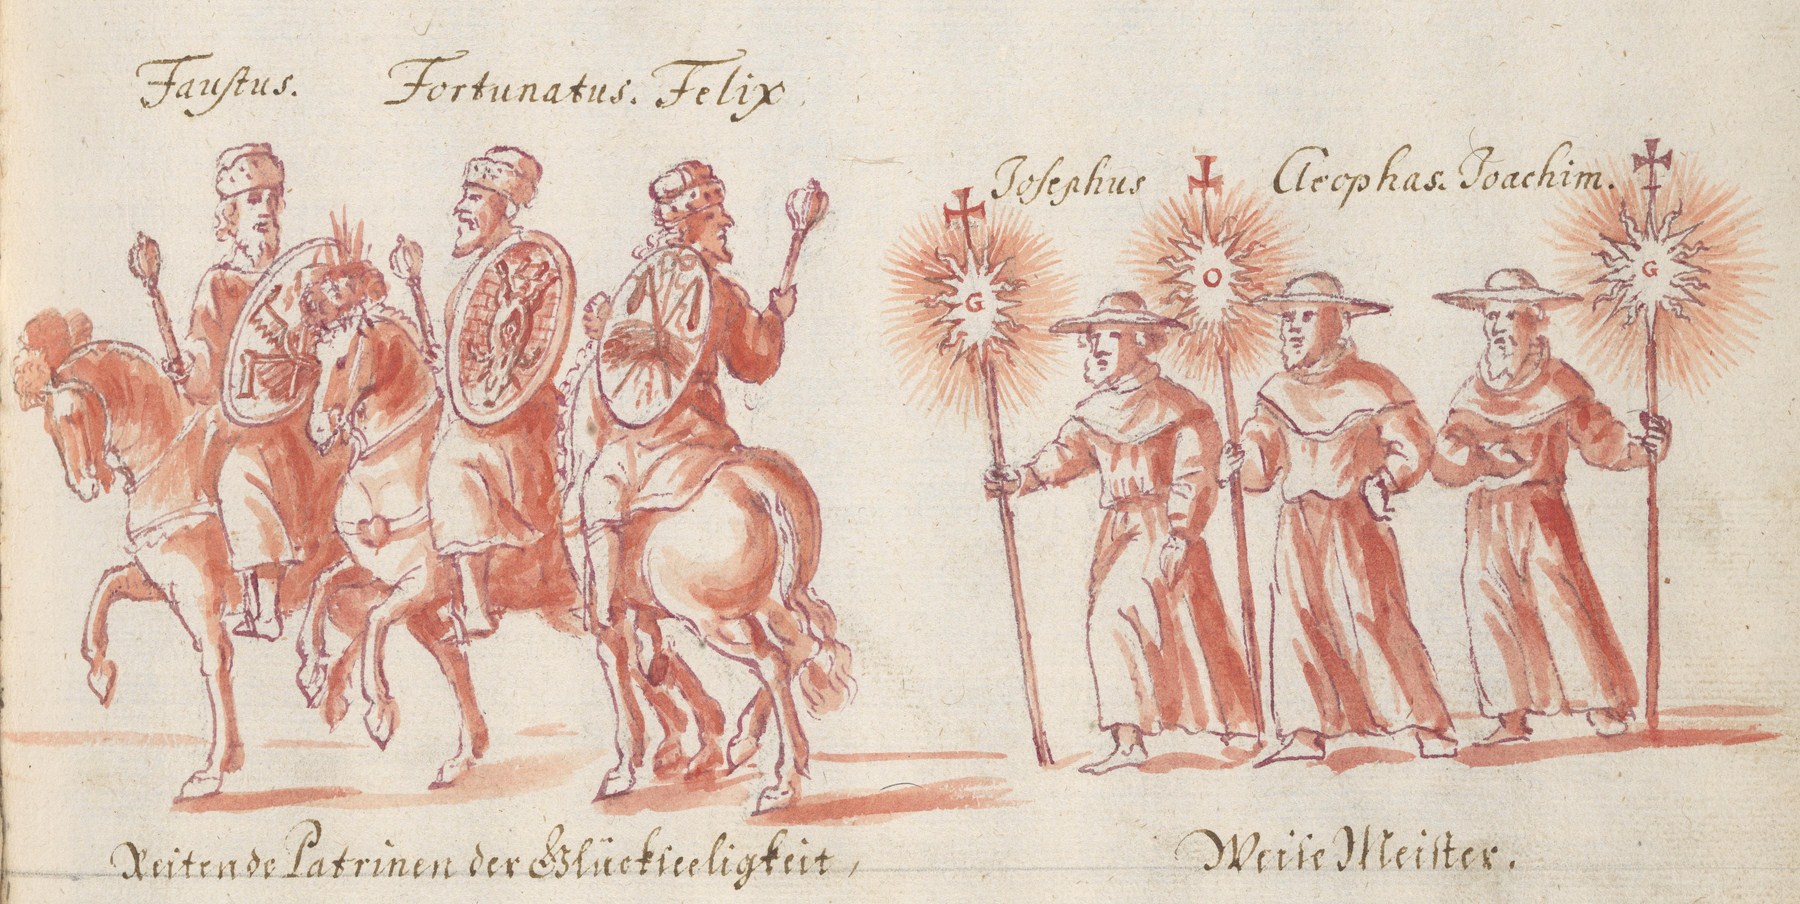 Faustus. Fortunatus. Felix
Josephus Cleophas. Joachim.
G O G
Reitende Patrinen der Glückseeligkeit,
Weise Meister.